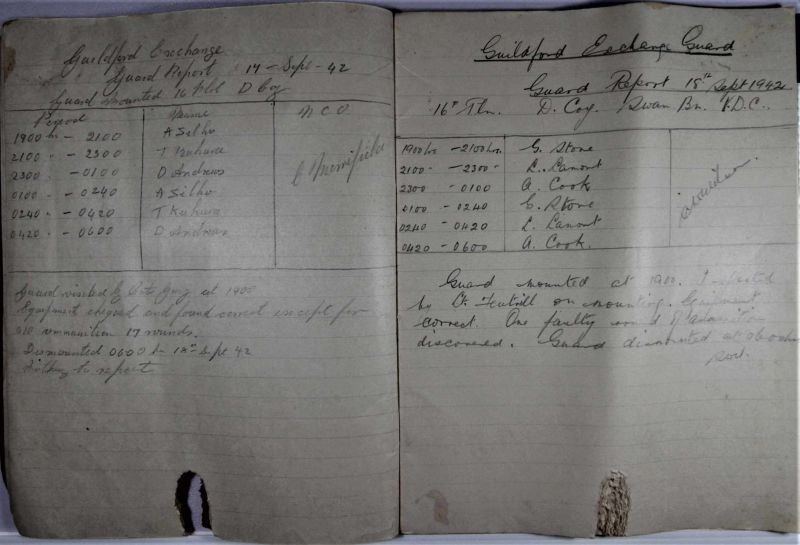 Guildford Exchange
Guard Report 17 - Sept - 42
Guard mounted 16 D Coy
Period Name N C O
1900 hr - 2100 A Silho
2100 " - 2300 T
2300 - 0100 D Andrews
0100 - 0240 A Silho
0240 - 0420 T
0420 - 0600 D Andrews
Guard visited by at 1900
Equipment checked and found correct except for
ammunition 17 rounds.
Dismounted 0600 hr 18th Sept 42
Nothing to report
Guildford Exchange Guard
Guard Report 18th Sept 1942
16th D. Coy. Swan Bn. V.D.C.
1900 hrs - 2100 hrs. G. Stone
2100 - 2300 - L. Lamont
2300 - 0100 A. Cook
0100 - 0240 G. Stone
0240 - 0420 L. Lamont
0420 - 0600 A. Cook.
Guard mounted at 1900. Inspected
by Lt. on mounting. Equipment
correct. One faulty round of
discovered. Guard dismounted at 0600 hrs